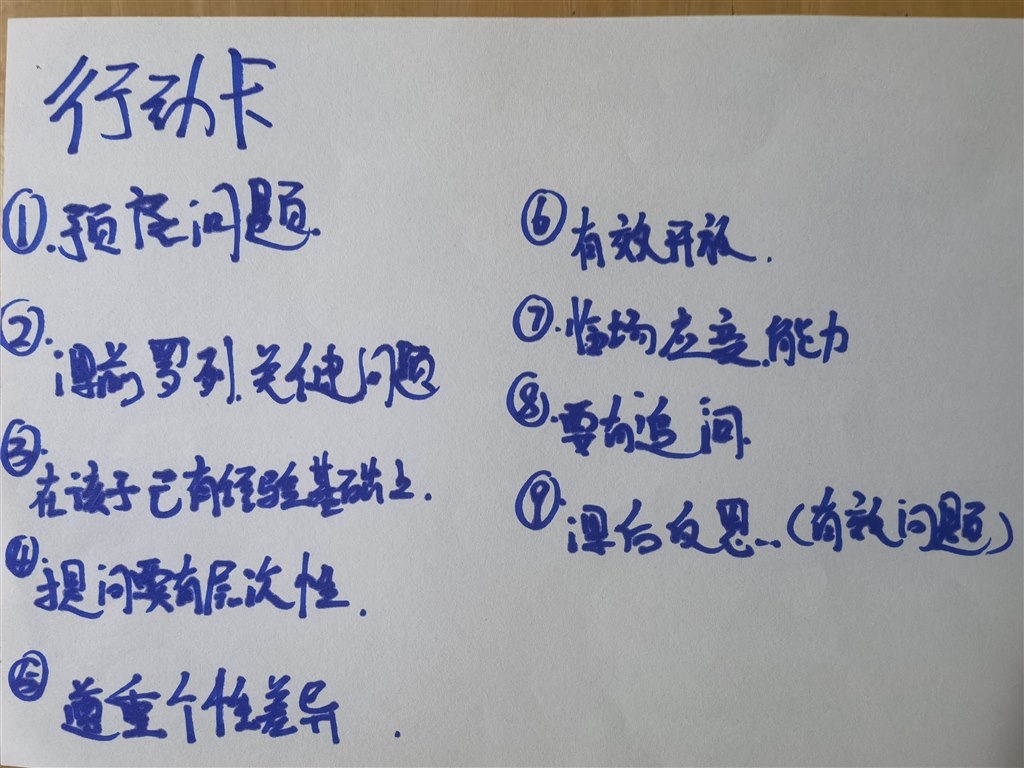 行动卡
①.预设问题.
②.课前罗列关键问题
③.在孩子已有经验基础上.
④提问要有层次性.
⑤尊重个性差异.
⑥有效开放.
⑦.临场应变能力
⑧.要有追问.
⑨.课后反思..(有效问题)